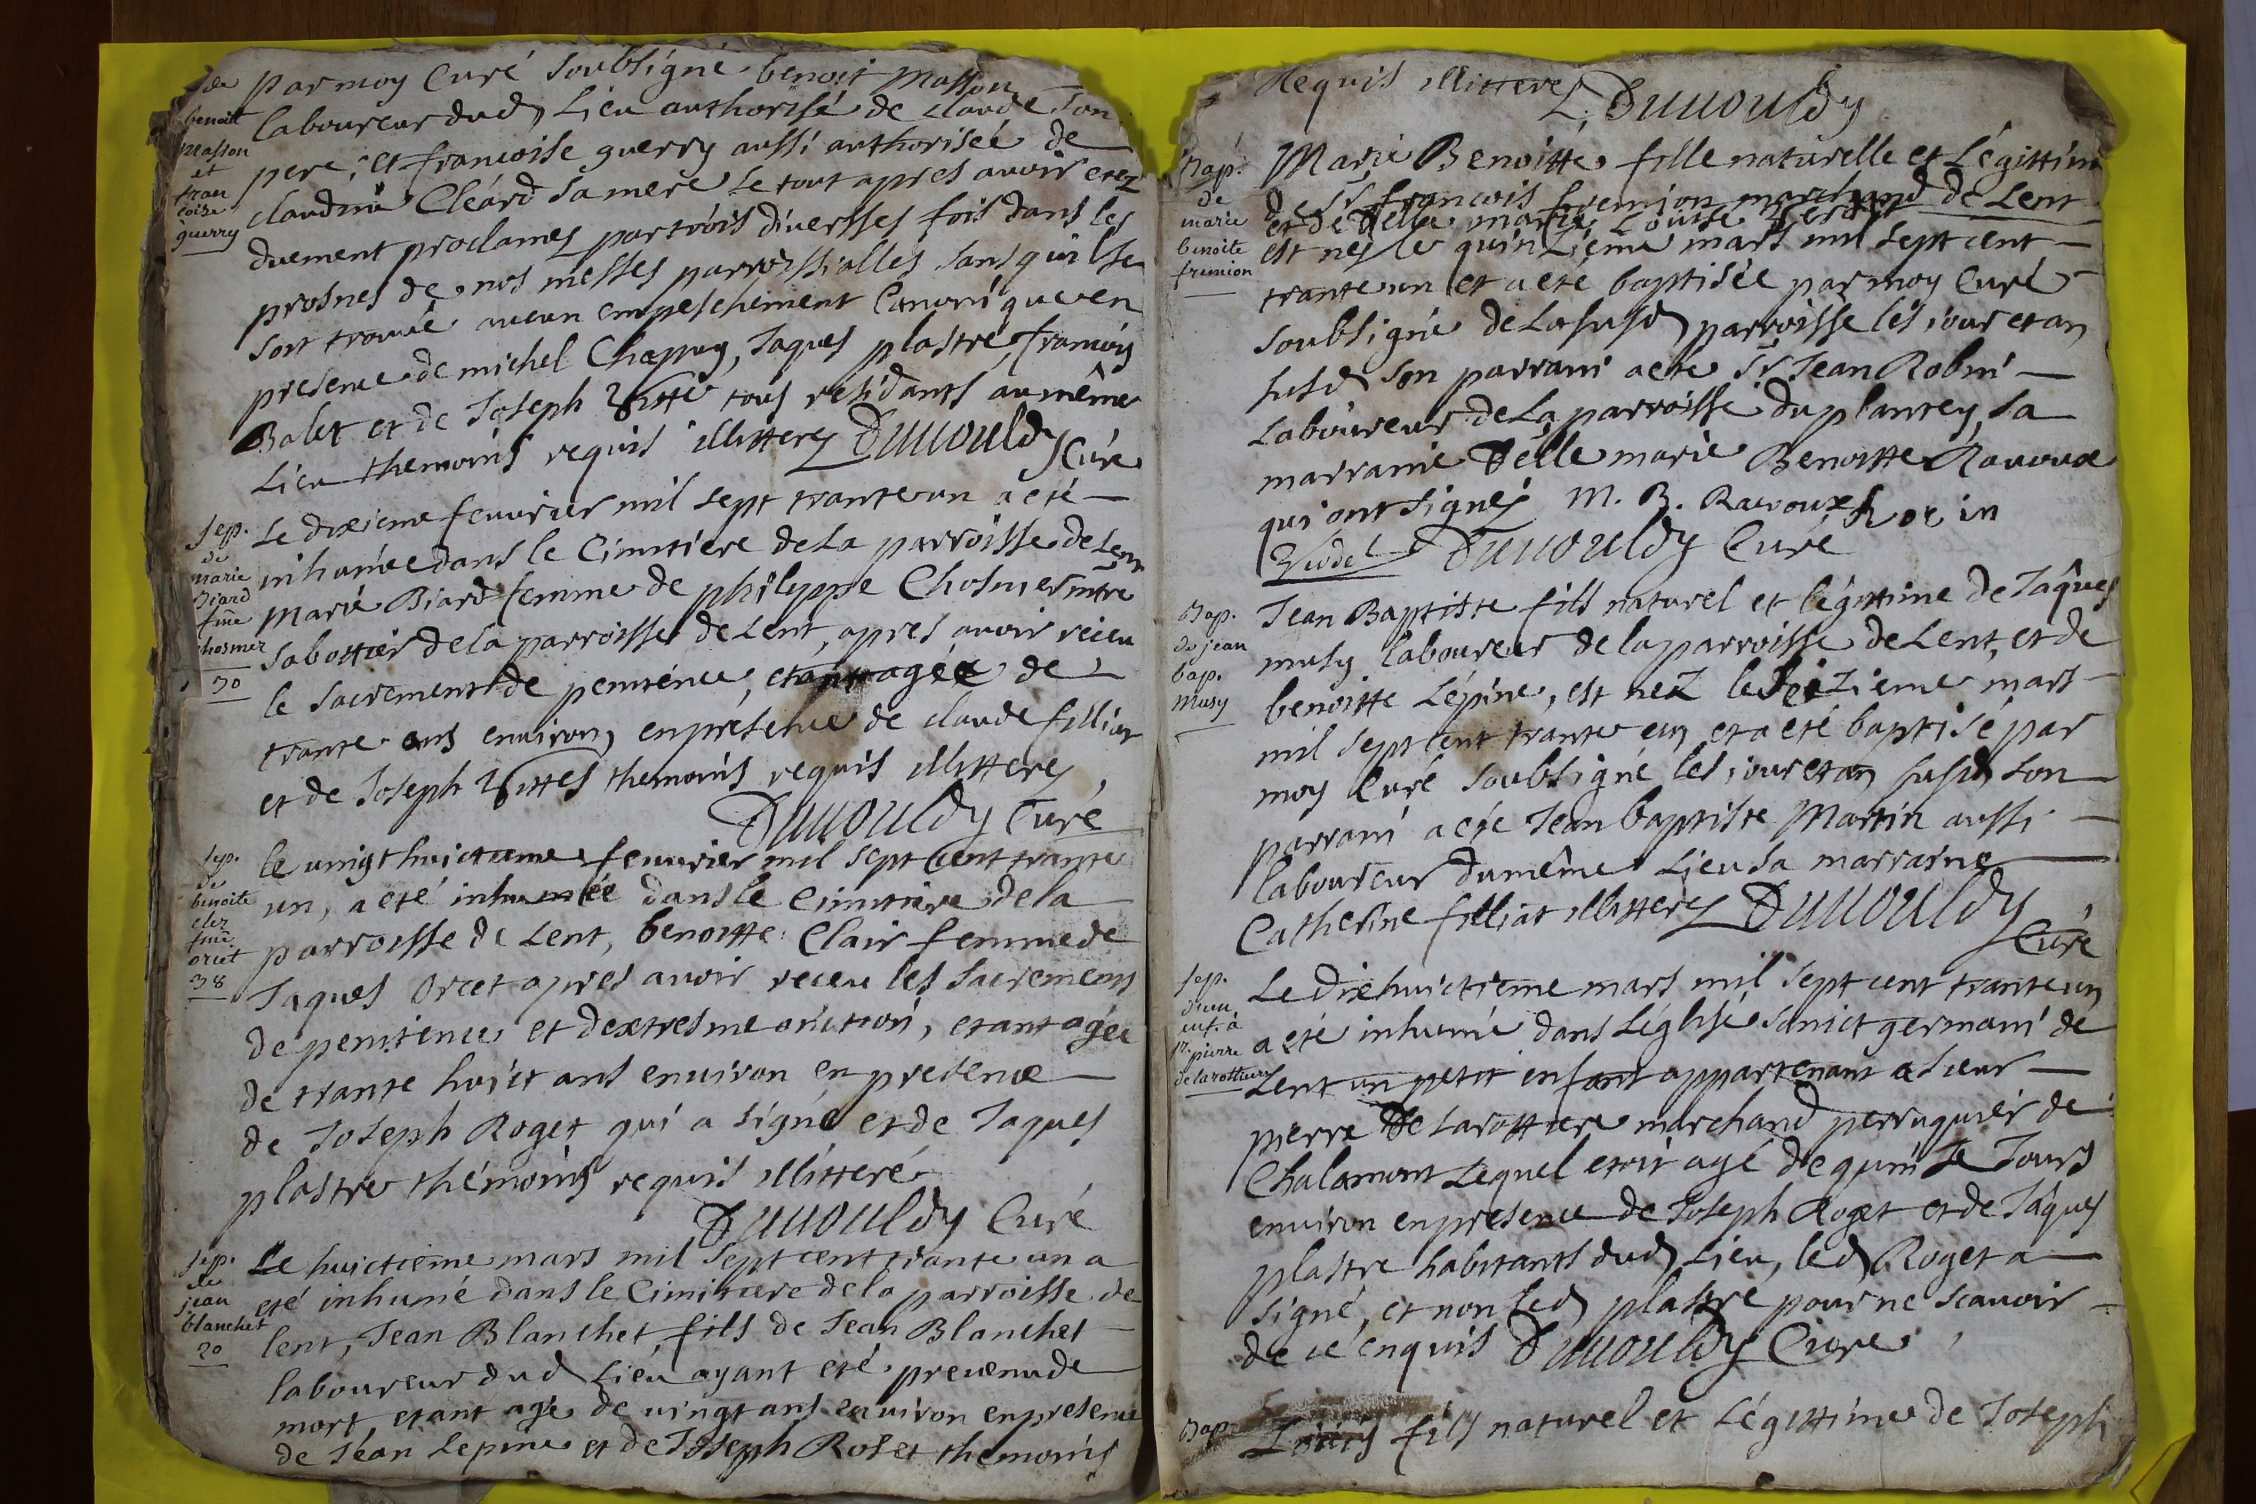 de
benoit
masson
et
fran
coise
guerry
par moy Curé soubsigné benoit Masson
laboureur dud Lieu authorisé de claude son
pere, et francoise guerry aussi authorisée de
claudine Cléard sa mere le tout apres avoir etez
duement proclamez par trois diversses fois dans les
prosnes de nos messes parroissialles sans qu'il se
soit trouvé aucun empeschement Canonique en
presence de michel Chappuy, Jaques plastre, francois
Bolet et de Joseph tous residants au même
Lieu themoins requis illitterez Duuouldy Curé
sep.
de
marie
Biard
fme
chosmer
30
Le dixieme feuurier mil sept trante un a eté
inhumée dans le Cimitiere de La parroisse de Lent
Marie Biard femme de philyppe Chosmer mtre
Sabottier de la parroisse de Lent, apres auoir receu
le sacrement de penitence, etant agée de
trante ans environ, en présence de claude filliat
et de Joseph themoins requis illitterez
Duuouldy Curé
sep.
de
benoite
cler
fme
orcet
38
le uingt huictieme feuurier mil sept cent trante
un, a eté inhumée dans le Cimitiere de la
parroisse de Lent, benoitte Clair femme de
Jaques Orcet apres auoir receu les sacremens
de penitence et dextresme onction, etant agée
de trante huict ans enuiron en presence
de Joseph Roget qui a signé et de Jaques
plastre thémoins requis illitteré
Duuouldy Curé
sep.
de
jean
blanchet
20
Le huictieme mars mil sept cent trante un a
eté inhumé dans le Cimitiere de la parroisse de
lent, Jean Blanchet, fils de Jean Blanchet
laboureur dud Lieu ayant eté preuenu de
mort etant agé de uingt ans enuiron en presence
de Jéan Lepine et de Joseph Roset themoins
Requis illitterez Duuouldy
Bap.
de
marie
benoite
fremion
Marie Benoitte fille naturelle et Légittime
de Sr francois fremion marchand de Lent
et de Delle marie Louise
est neé le quinzième mars mil sept cent
trante un et a eté baptisée par moy Curé
soubsigné de La susd parroisse les jour et an
susd son parrain a eté Sr Jean Robin
Laboureur de La parroisse du plantey, sa
marraine Delle marie Benoitte Rauoux
qui ont signéz M. B. Rauoux
Duuouldy Curé
Bap.
de jean
bap.
musy
Jean Baptiste fils naturel et légittime de Jâques
musy laboureur de la parroisse de Lent, et de
benoitte Lépine, est nez le seizieme mars
mil sept cent trante un et a eté baptisé par
moy Curé soubsigné les jour et an susd son
parrain a eté Jean baptiste Martin aussi
laboureur du même Lieu sa marraine
Catherine filliat illitterez Duuouldy
Curé
sep.
d'un
enf. à
sr. pierre
delarottiere
Le dixhuictieme mars mil sept cent trante un
a eté inhumé dans Léglise sainct germain de
Lent un petit enfant appartenant a sieur
pierre De Larottiere marchand perruquier de
Chalamont Lequel etoit agé de quinze Jours
enuiron en presence de Joseph Roget et de Jâques
plastre habitants dud Lieu, led Roget a
signé, et non led plastre pour ne scauoir
de ce enquis Duuouldy Curé
Bap.
Louis fils naturel et Légittime de Joseph